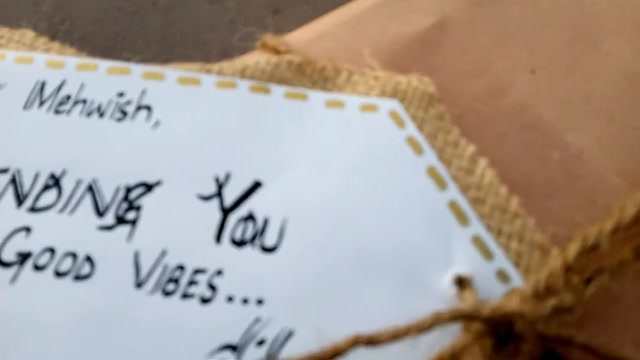 Mehwish,
NDING YOU
GOOD VIBES...